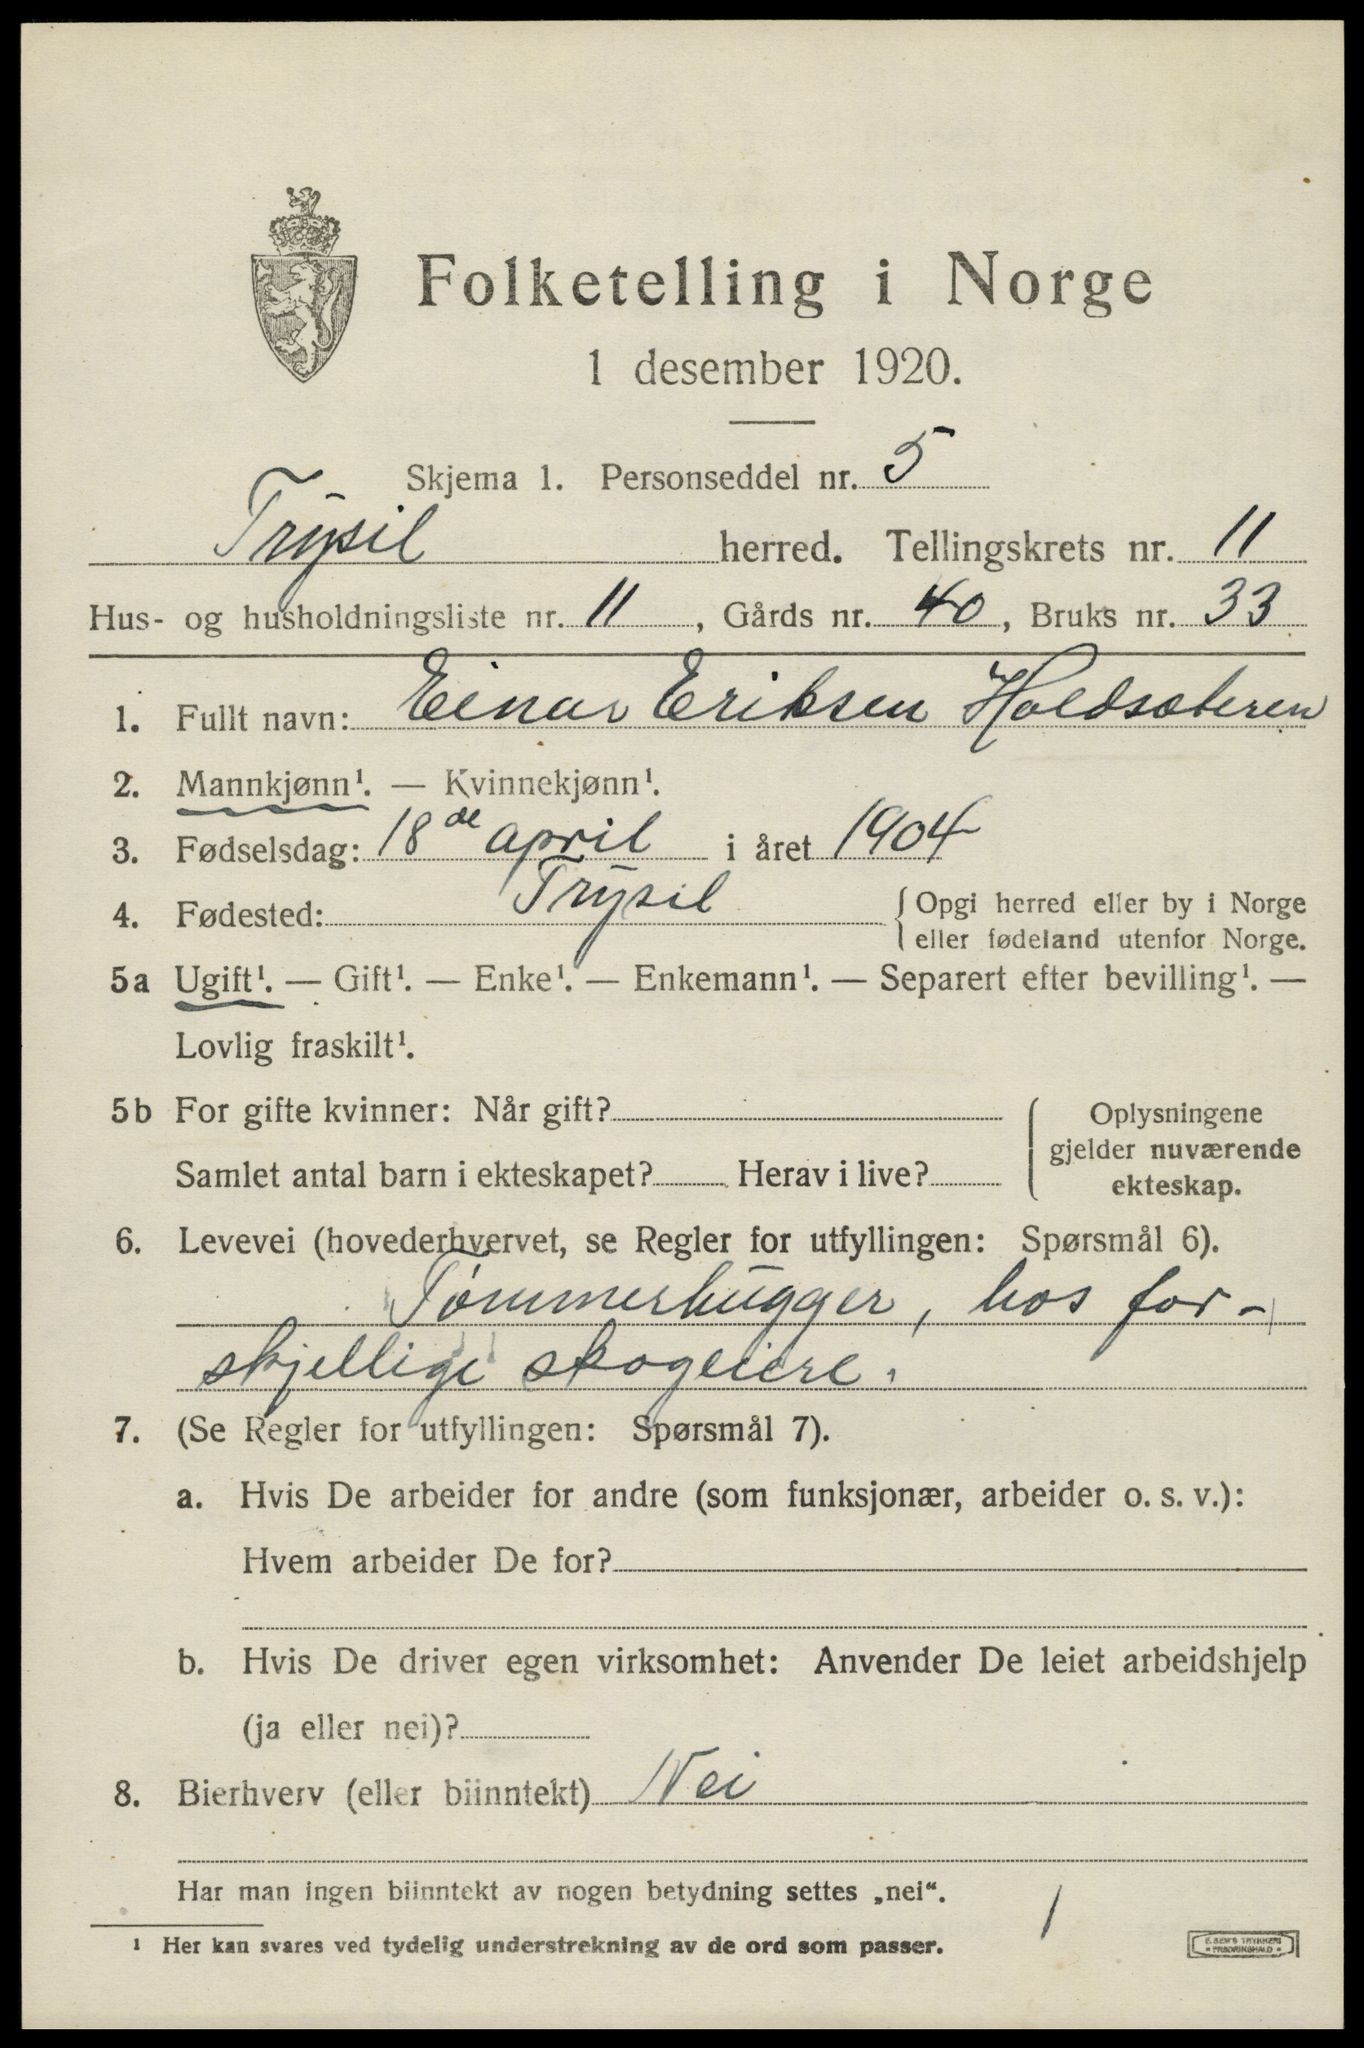 Folketelling i Norge
1 desember 1920.
Skjema 1. Personseddel nr. 5
Trysil herred. Tellingskrets nr. 11
Hus- og husholdningsliste nr. 11, Gårds nr. 40, Bruks nr. 33
1. Fullt navn: Einar Eriksen Holdsæteren
2. Mannkjønn¹. — Kvinnekjønn¹.
3. Fødselsdag: 18de april i året 1904
4. Fødested: Trysil { Opgi herred eller by i Norge
eller fødeland utenfor Norge.
5a Ugift¹. — Gift¹. — Enke¹. — Enkemann¹. — Separert efter bevilling¹. —
Lovlig fraskilt¹.
5b For gifte kvinner: Når gift?
Samlet antal barn i ekteskapet? Herav i live?
Oplysningene
gjelder nuværende
ekteskap.
6. Levevei (hovederhvervet, se Regler for utfyllingen: Spørsmål 6).
Tømmerhugger, hos for-
skjellige skogeiere.
7. (Se Regler for utfyllingen: Spørsmål 7).
a. Hvis De arbeider for andre (som funksjonær, arbeider o. s. v.):
Hvem arbeider De for?
b. Hvis De driver egen virksomhet: Anvender De leiet arbeidshjelp
(ja eller nei)?
8. Bierhverv (eller biinntekt) Nei
Har man ingen biinntekt av nogen betydning settes „nei“.
1
¹ Her kan svares ved tydelig understrekning av de ord som passer.
E. SEM'S TRYKKERI
FREDRIKSHALD